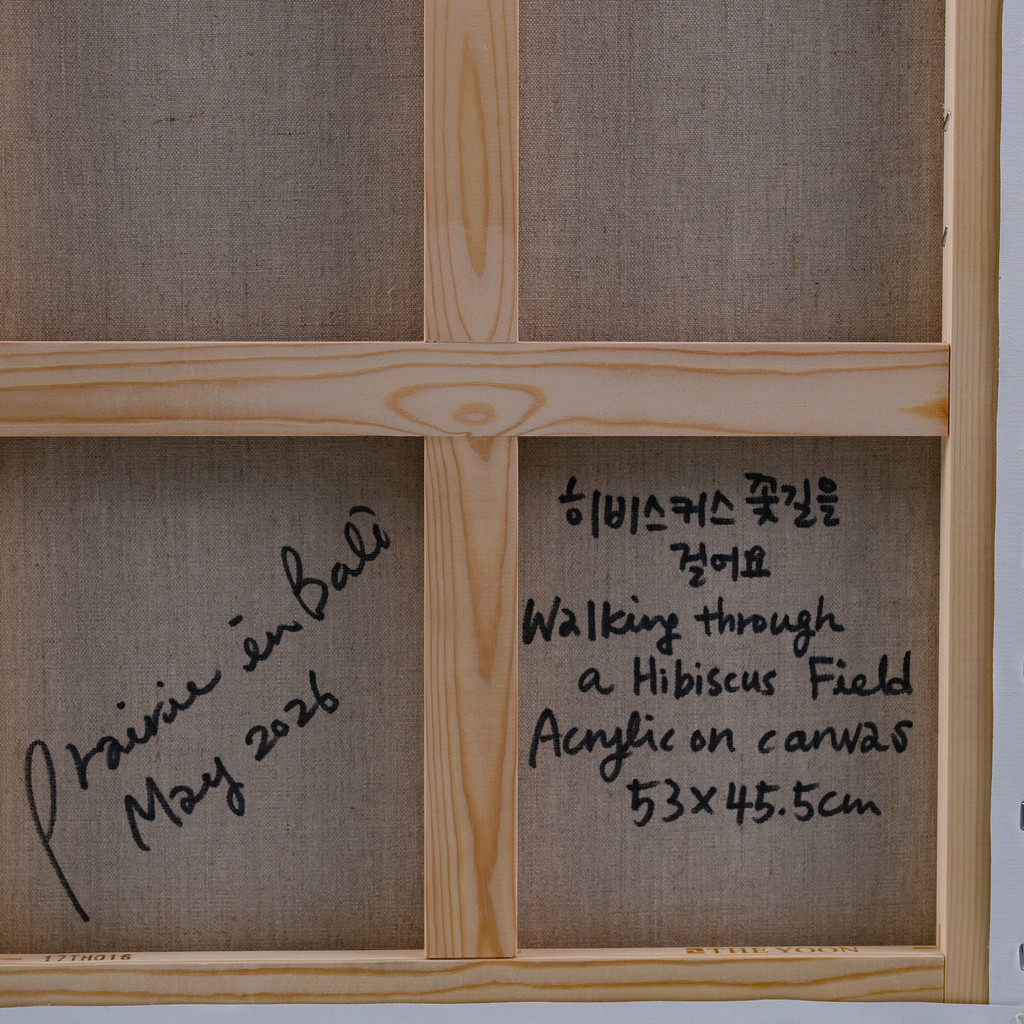 Prairie én Bali
May 2026
히비스커스 꽃길을
걸어요
Walking through
a Hibiscus Field
Acrylic on canvas
53x45.5cm
17TH016
THE YOON